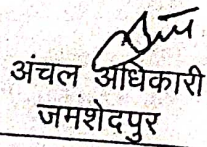 अंचल अधिकारी
जमशेदपुर